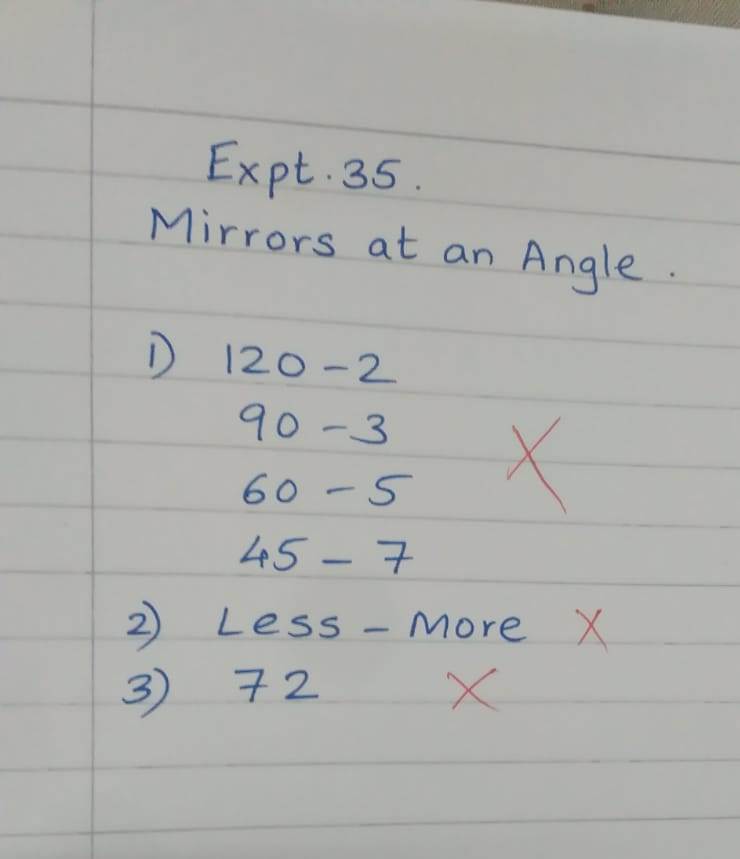 Expt. 35.
Mirrors at an Angle.
1) 120 - 2
90 - 3
60 - 5
45 - 7
2) Less - More X
3) 72 X